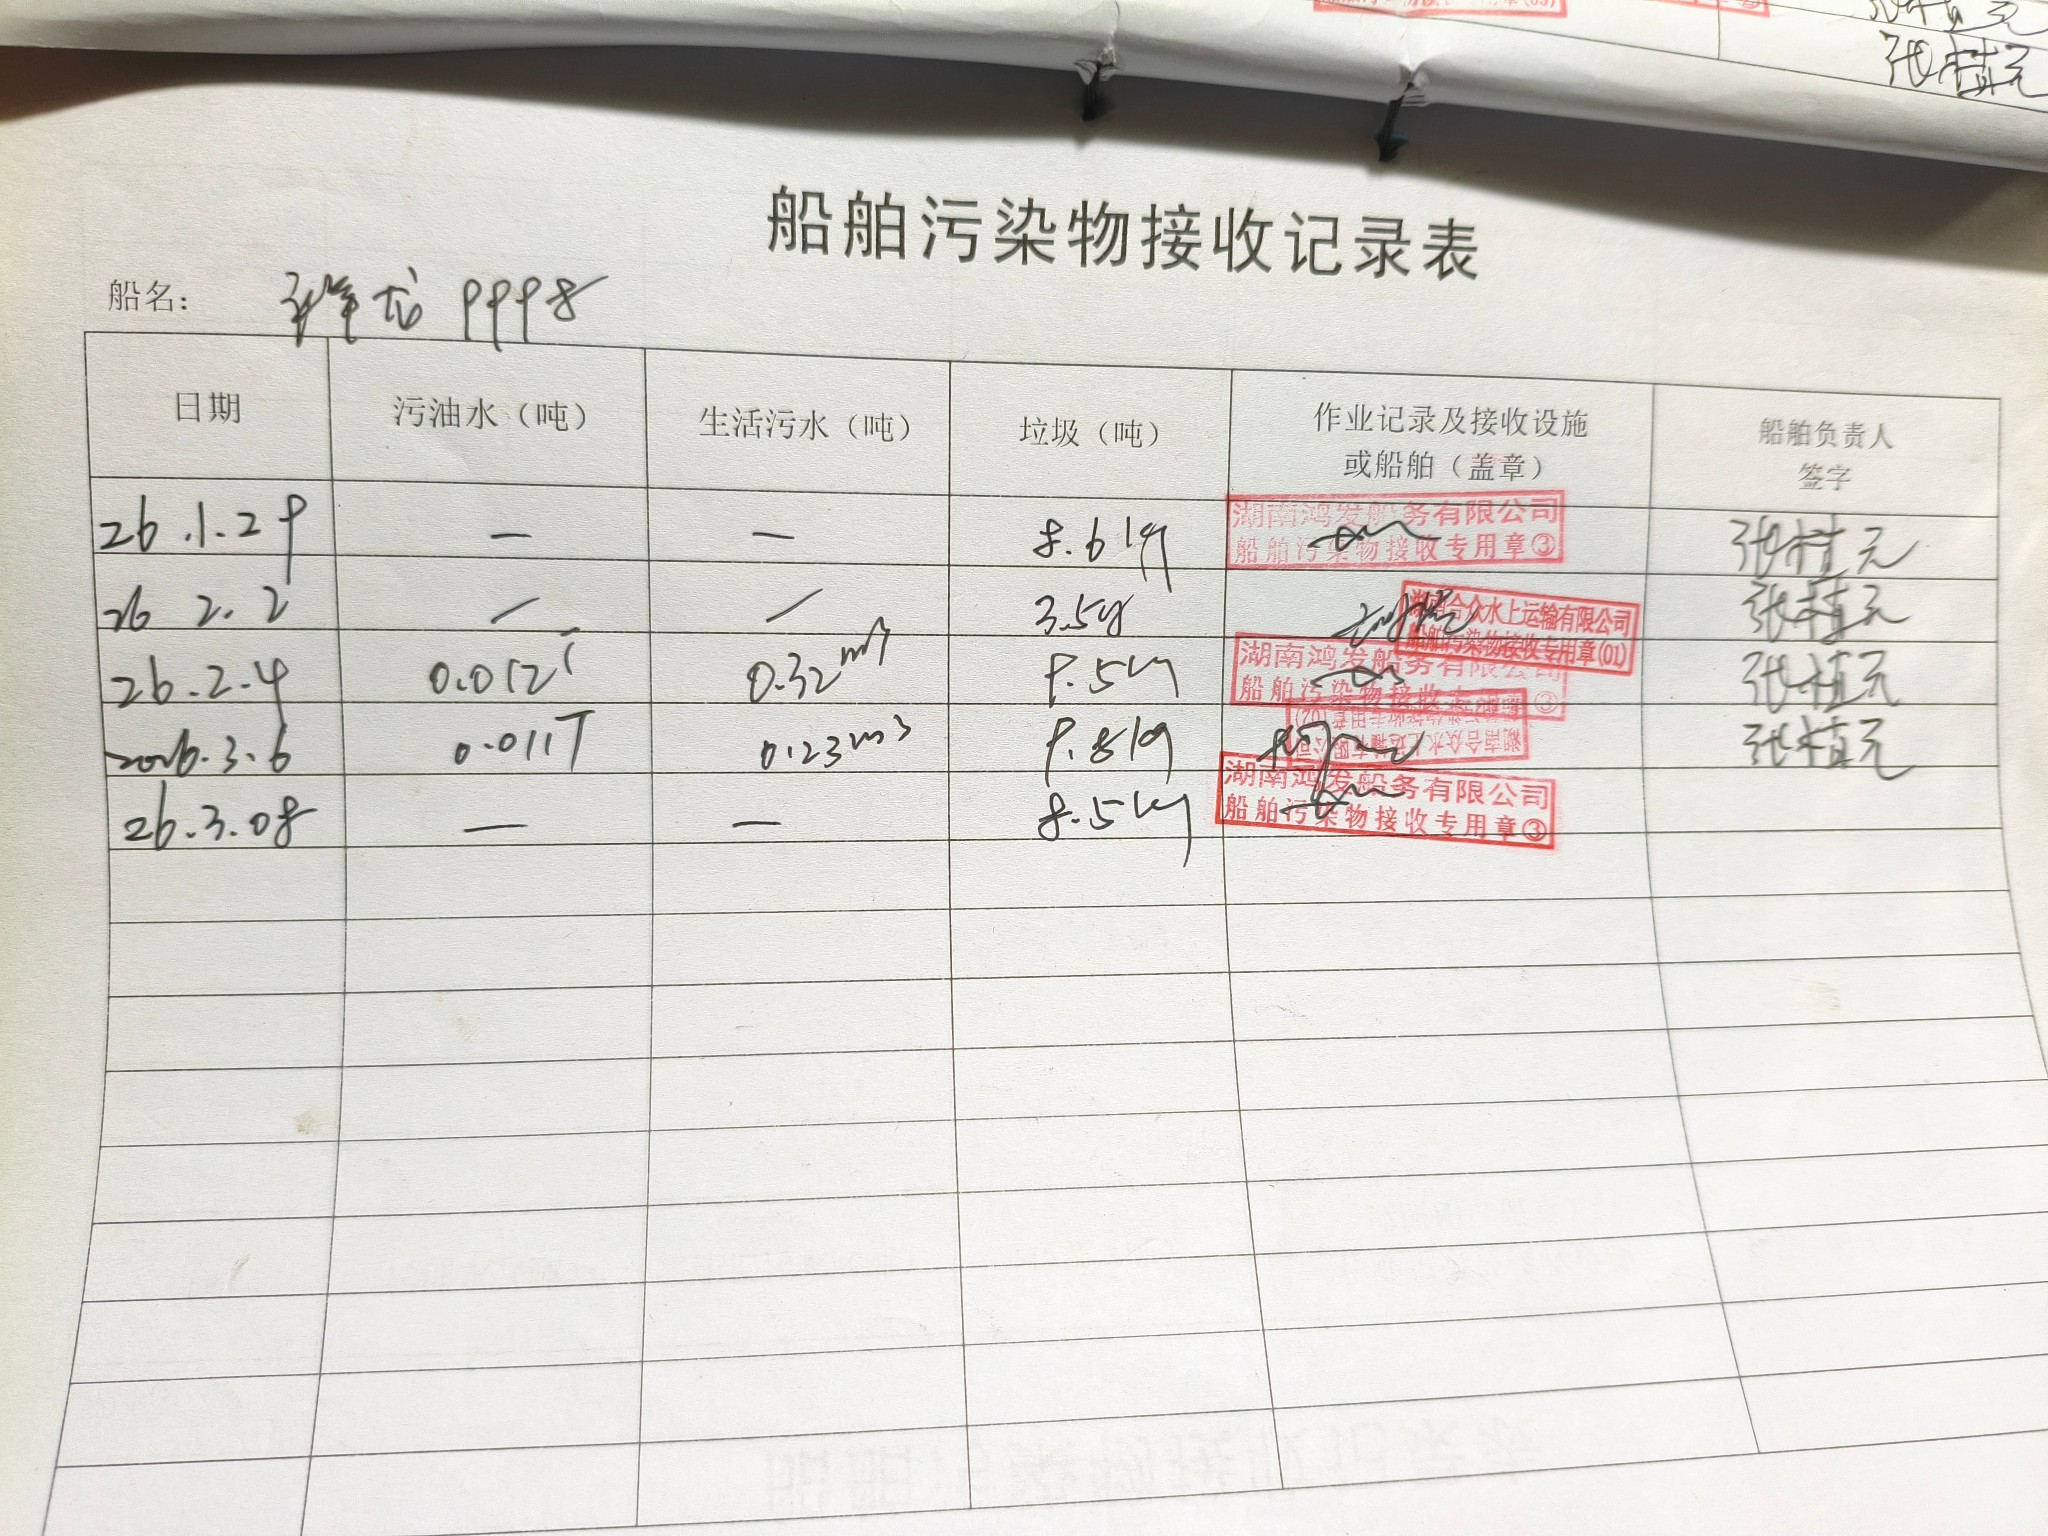 张植元
船舶污染物接收记录表
船名： 祥龙 9998
日期 污油水（吨） 生活污水（吨） 垃圾（吨） 作业记录及接收设施或船舶（盖章） 船舶负责人签字
26.1.29 — — 8.6kg 湖南鸿发船务有限公司 船舶污染物接收专用章③ 张植元
26 2.2 / / 3.5kg 湖南合众水上运输有限公司 船舶污染物接收专用章(01) 张植元
26.2.4 0.012T 0.32m³ 9.5kg 湖南鸿发船务有限公司 船舶污染物接收专用章③ 张植元
2026.3.6 0.011T 0.23m3 9.8kg 湖南合众水上运输有限公司 船舶污染物接收专用章(02) 张植元
26.3.08 — — 8.5kg 湖南鸿发船务有限公司 船舶污染物接收专用章③